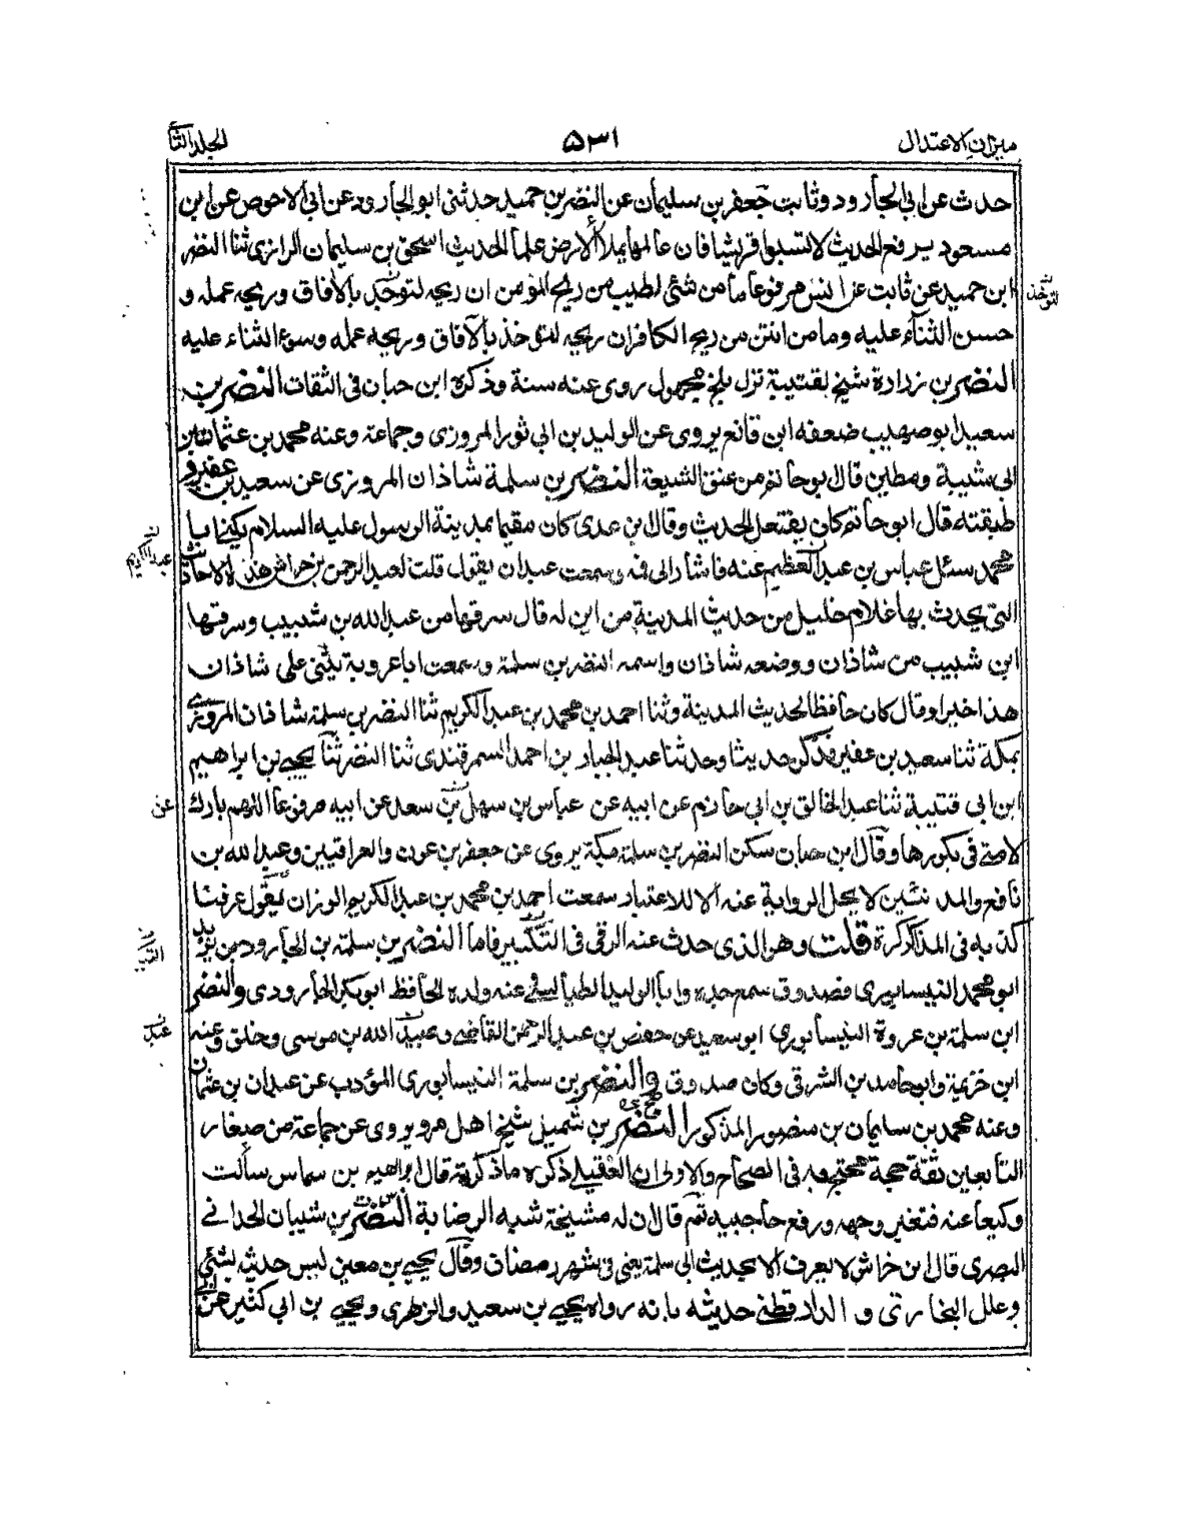 ميزان الاعتدال
٥٣١
الجلد الثا
حدث عن ابى الجارود وثابت جعفر بن سليمان عن النضر بن حميد حدثنى ابو الجارود عن ابى الاحوص عن ابن
مسعود يرفع الحديث لا تسبوا قريشا فان عالمها يملأ الارض علما الحديث اسحق بن سليمان الرازى ثنا النضر
ابن حميد عن ثابت عن انس مرفوعا ما من شئى اطيب من ريح المؤمن ان ريحه لتوخذ بالآفاق وريحه عمله و
لتوخذ
حسن الثناء عليه وما من انتن من ريح الكافر ان ريحه لتوخذ بالآفاق وريحه عمله وسوء الثناء عليه
النضر بن زرارة شيخ لقتيبة نزل بلخ مجهول روى عنه ستة وذكره ابن حبان فى الثقات النضر بن
سعيد ابو صهيب ضعفه ابن قانع يروى عن الوليد بن ابى ثور المروزى وجماعة وعنه محمد بن عثمان بن
ابى شيبة ومطين قال ابو حاتم من عتق الشيعة النضر بن سلمة شاذان المروزى عن سعيد بن عفير و
طبقته قال ابو حاتم كان يفتعل الحديث وقال ابن عدى كان مقيما بمدينة الرسول عليه السلام يكنى ابا
محمد سئل عباس بن عبد العظيم عنه فاشار الى فمه وسمعت عبدان يقول قلت لعبد الرحمن بن خراش هذه الاحاديث
عبد الكريم
التى يحدث بها غلام خليل من حديث المدينة من اين له قال سرقها من عبد الله بن شبيب وسرقها
ابن شبيب من شاذان ووضعه شاذان واسمه النضر بن سلمة وسمعت ابا عروبة يثنى على شاذان
هذا خيرا وقال كان حافظا لحديث المدينة وثنا احمد بن محمد بن عبد الكريم ثنا النضر بن سلمة شاذان المروزى
بمكة ثنا سعيد بن عفير فذكر حديثا وحدثنا عبد الجبار بن احمد السمرقندى ثنا النضر ثنا يحيى بن ابراهيم
ابن ابى قتيبة ثنا عبد الخالق بن ابى حازم عن ابيه عن عباس بن سهل بن سعد عن ابيه مرفوعا اللهم بارك
عن
لامتى فى بكورها وقال ابن حبان سكن النضر بن سلمة مكة يروى عن جعفر بن عون والعراقيين وعبد الله بن
نافع والمدنيين لا يحل الرواية عنه الا للاعتبار سمعت احمد بن محمد بن عبد الكريم الوزان يقول عرفنا
كذبه فى المذاكرة قلت وهو الذى حدث عنه الرقى فى التكبير فاما النضر بن سلمة بن الجارود بن يزيد
ابو محمد النيسابورى فصدوق سمع جده وابا الوليد الطيالسى عنه ولده الحافظ ابو بكر الجارودى والنضر
ابن سلمة بن عروة النيسابورى ابو سعيد عن حفص بن عبد الرحمن القاضى وعبيد الله بن موسى وخلق وعنه
ابن خزيمة وابو حامد بن الشرقى وكان صدوق والنضر بن سلمة النيسابورى المؤدب عن عبدان بن عثمان
وعنه محمد بن سليمان بن منصور المذكور النضر بن شميل شيخ اهل مرو يروى عن جماعة من صغار
التابعين ثقة حجة محتج به فى الصحاح ولولا ان العقيلى ذكره ما ذكرته قال ابراهيم بن سماس سألت
وكيعا عنه فتغير وجهه ورفع حاجبيه ثم قال ان له مشيخة شبه الرضا به النضر بن شيبان الحدانى
البصرى قال ابن خراش لا يعرف الا بحديث ابى سلمة يعنى فى شهر رمضان وقال يحيى بن معين ليس حديثه بشئى
وعلل البخارى و الدارقطنى حديثه بانه رواه يحيى بن سعيد والزهرى ويحيى بن ابى كثير عن ابى